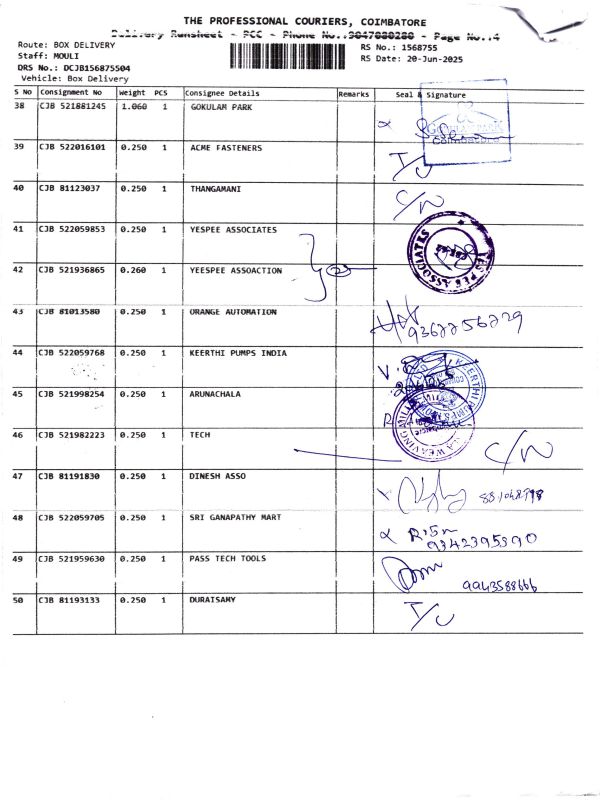 THE PROFESSIONAL COURIERS, COIMBATORE
Delivery Runsheet - PCC - Phone No.:9047080280 - Page No.:4
Route: BOX DELIVERY
Staff: MOULI
DRS No.: DCJB156875504
Vehicle: Box Delivery
RS No.: 1568755
RS Date: 20-Jun-2025
S No Consignment No Weight PCS Consignee Details Remarks Seal & Signature
38 CJB 521881245 1.060 1 GOKULAM PARK
Coimbatore
39 CJB 522016101 0.250 1 ACME FASTENERS I/C
40 CJB 81123037 0.250 1 THANGAMANI C/N
41 CJB 522059853 0.250 1 YESPEE ASSOCIATES
YES PEE ASSOCIATES
42 CJB 521936865 0.260 1 YEESPEE ASSOACTION 2
43 CJB 81013580 0.250 1 ORANGE AUTOMATION
9362256229
44 CJB 522059768 0.250 1 KEERTHI PUMPS INDIA
45 CJB 521998254 0.250 1 ARUNACHALA
46 CJB 521982223 0.250 1 TECH C/N
47 CJB 81191830 0.250 1 DINESH ASSO
48 CJB 522059705 0.250 1 SRI GANAPATHY MART
9342395390
49 CJB 521959630 0.250 1 PASS TECH TOOLS
9943588666
50 CJB 81193133 0.250 1 DURAISAMY I/C